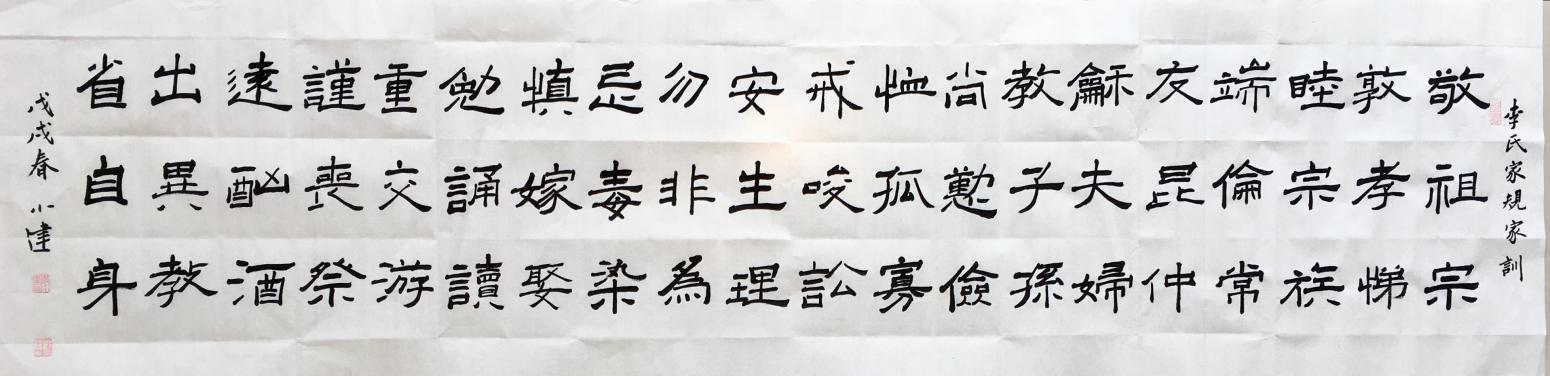 李氏家規家訓
敬祖宗
敦孝悌
睦宗族
端倫常
友昆仲
龢夫婦
教子孫
尚懃儉
恤孤寡
戒唆訟
安生理
勿非為
忌毒染
慎嫁娶
勉誦讀
重交游
謹喪祭
遠酗酒
出異教
省自身
戊戌春 小建